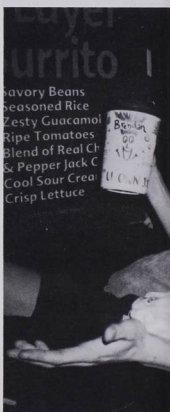 Layer
urrito
Savory Beans
Seasoned Rice
Zesty Guacamol
Ripe Tomatoes
Blend of Real Ch
& Pepper Jack C
Cool Sour Crea
Crisp Lettuce
Brandon